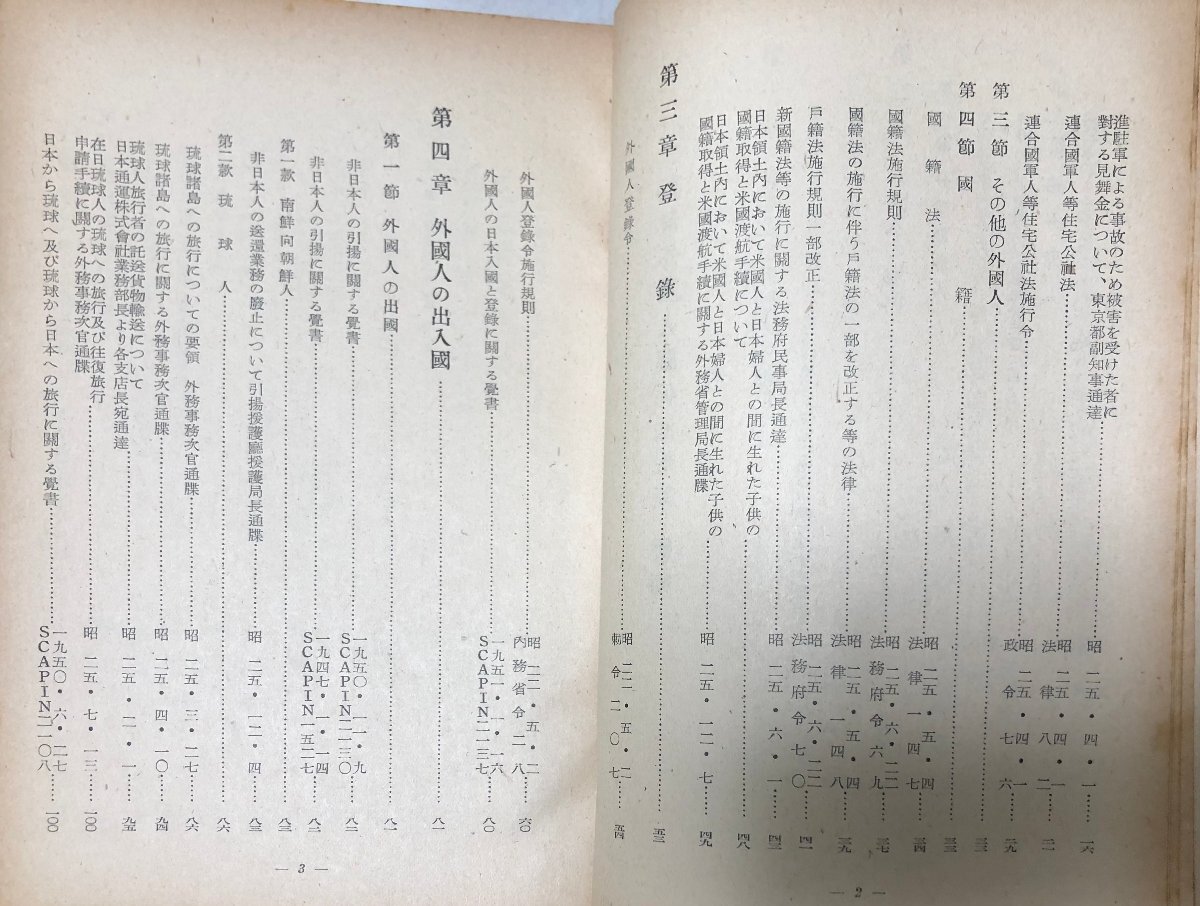 進駐軍による事故のため被害を受けた者に
對する見舞金について、東京都副知事通達 昭二五・四・一 一六
連合國軍人等住宅公社法 昭二五・四・一 法律八二 二一
連合國軍人等住宅公社法施行令 昭二五・四・一 政令七六 二九
第三節 その他の外國人 三三
第四節 國籍 三三
國籍法 昭二五・五・四 法律一四七 三四
國籍法施行規則 昭二五・六・二二 法務府令六九 三七
國籍法の施行に伴う戶籍法の一部を改正する等の法律 昭二五・五・四 法律一四八 三九
戶籍法施行規則一部改正 昭二五・六・二二 法務府令七〇 四一
新國籍法等の施行に關する法務府民事局長通達 昭二五・六・一 四三
日本領土內において米國人と日本婦人との間に生れた子供の
國籍取得と米國渡航手續について 四八
日本領土內において米國人と日本婦人との間に生れた子供の
國籍取得と米國渡航手續に關する外務省管理局長通牒 昭二五・一二・七 四九
第三章 登錄 五三
外國人登錄令 昭二二・五・二 勅令二〇七 五四
— 2 —
外國人登錄令施行規則 昭二二・五・二 內務省令二八 六〇
外國人の日本入國と登錄に關する覺書 一九五一・一・一六 SCAPIN二一三七 八〇
第四章 外國人の出入國 八一
第一節 外國人の出國 八一
非日本人の引揚に關する覺書 一九五〇・一一・九 SCAPIN二一三〇 八二
非日本人の引揚に關する覺書 一九四七・一・一四 SCAPIN一五二七 八二
第一款 南鮮向朝鮮人 八三
非日本人の送還業務の廢止について引揚援護廳援護局長通牒 昭二五・一二・四 八三
第二款 琉球人 八六
琉球諸島への旅行についての要領 外務事務次官通牒 昭二五・三・二七 八六
琉球諸島への旅行に關する外務事務次官通牒 昭二五・四・一〇 九四
琉球人旅行者の託送貨物輸送について
日本通運株式會社業務部長より各支店長宛通達 昭二五・二・一 九五
在日琉球人の琉球への旅行及び往復旅行
申請手續に關する外務事務次官通牒 昭二五・七・一三 一〇〇
日本から琉球へ及び琉球から日本への旅行に關する覺書 一九五〇・六・二七 SCAPIN二一〇八 一〇〇
— 3 —